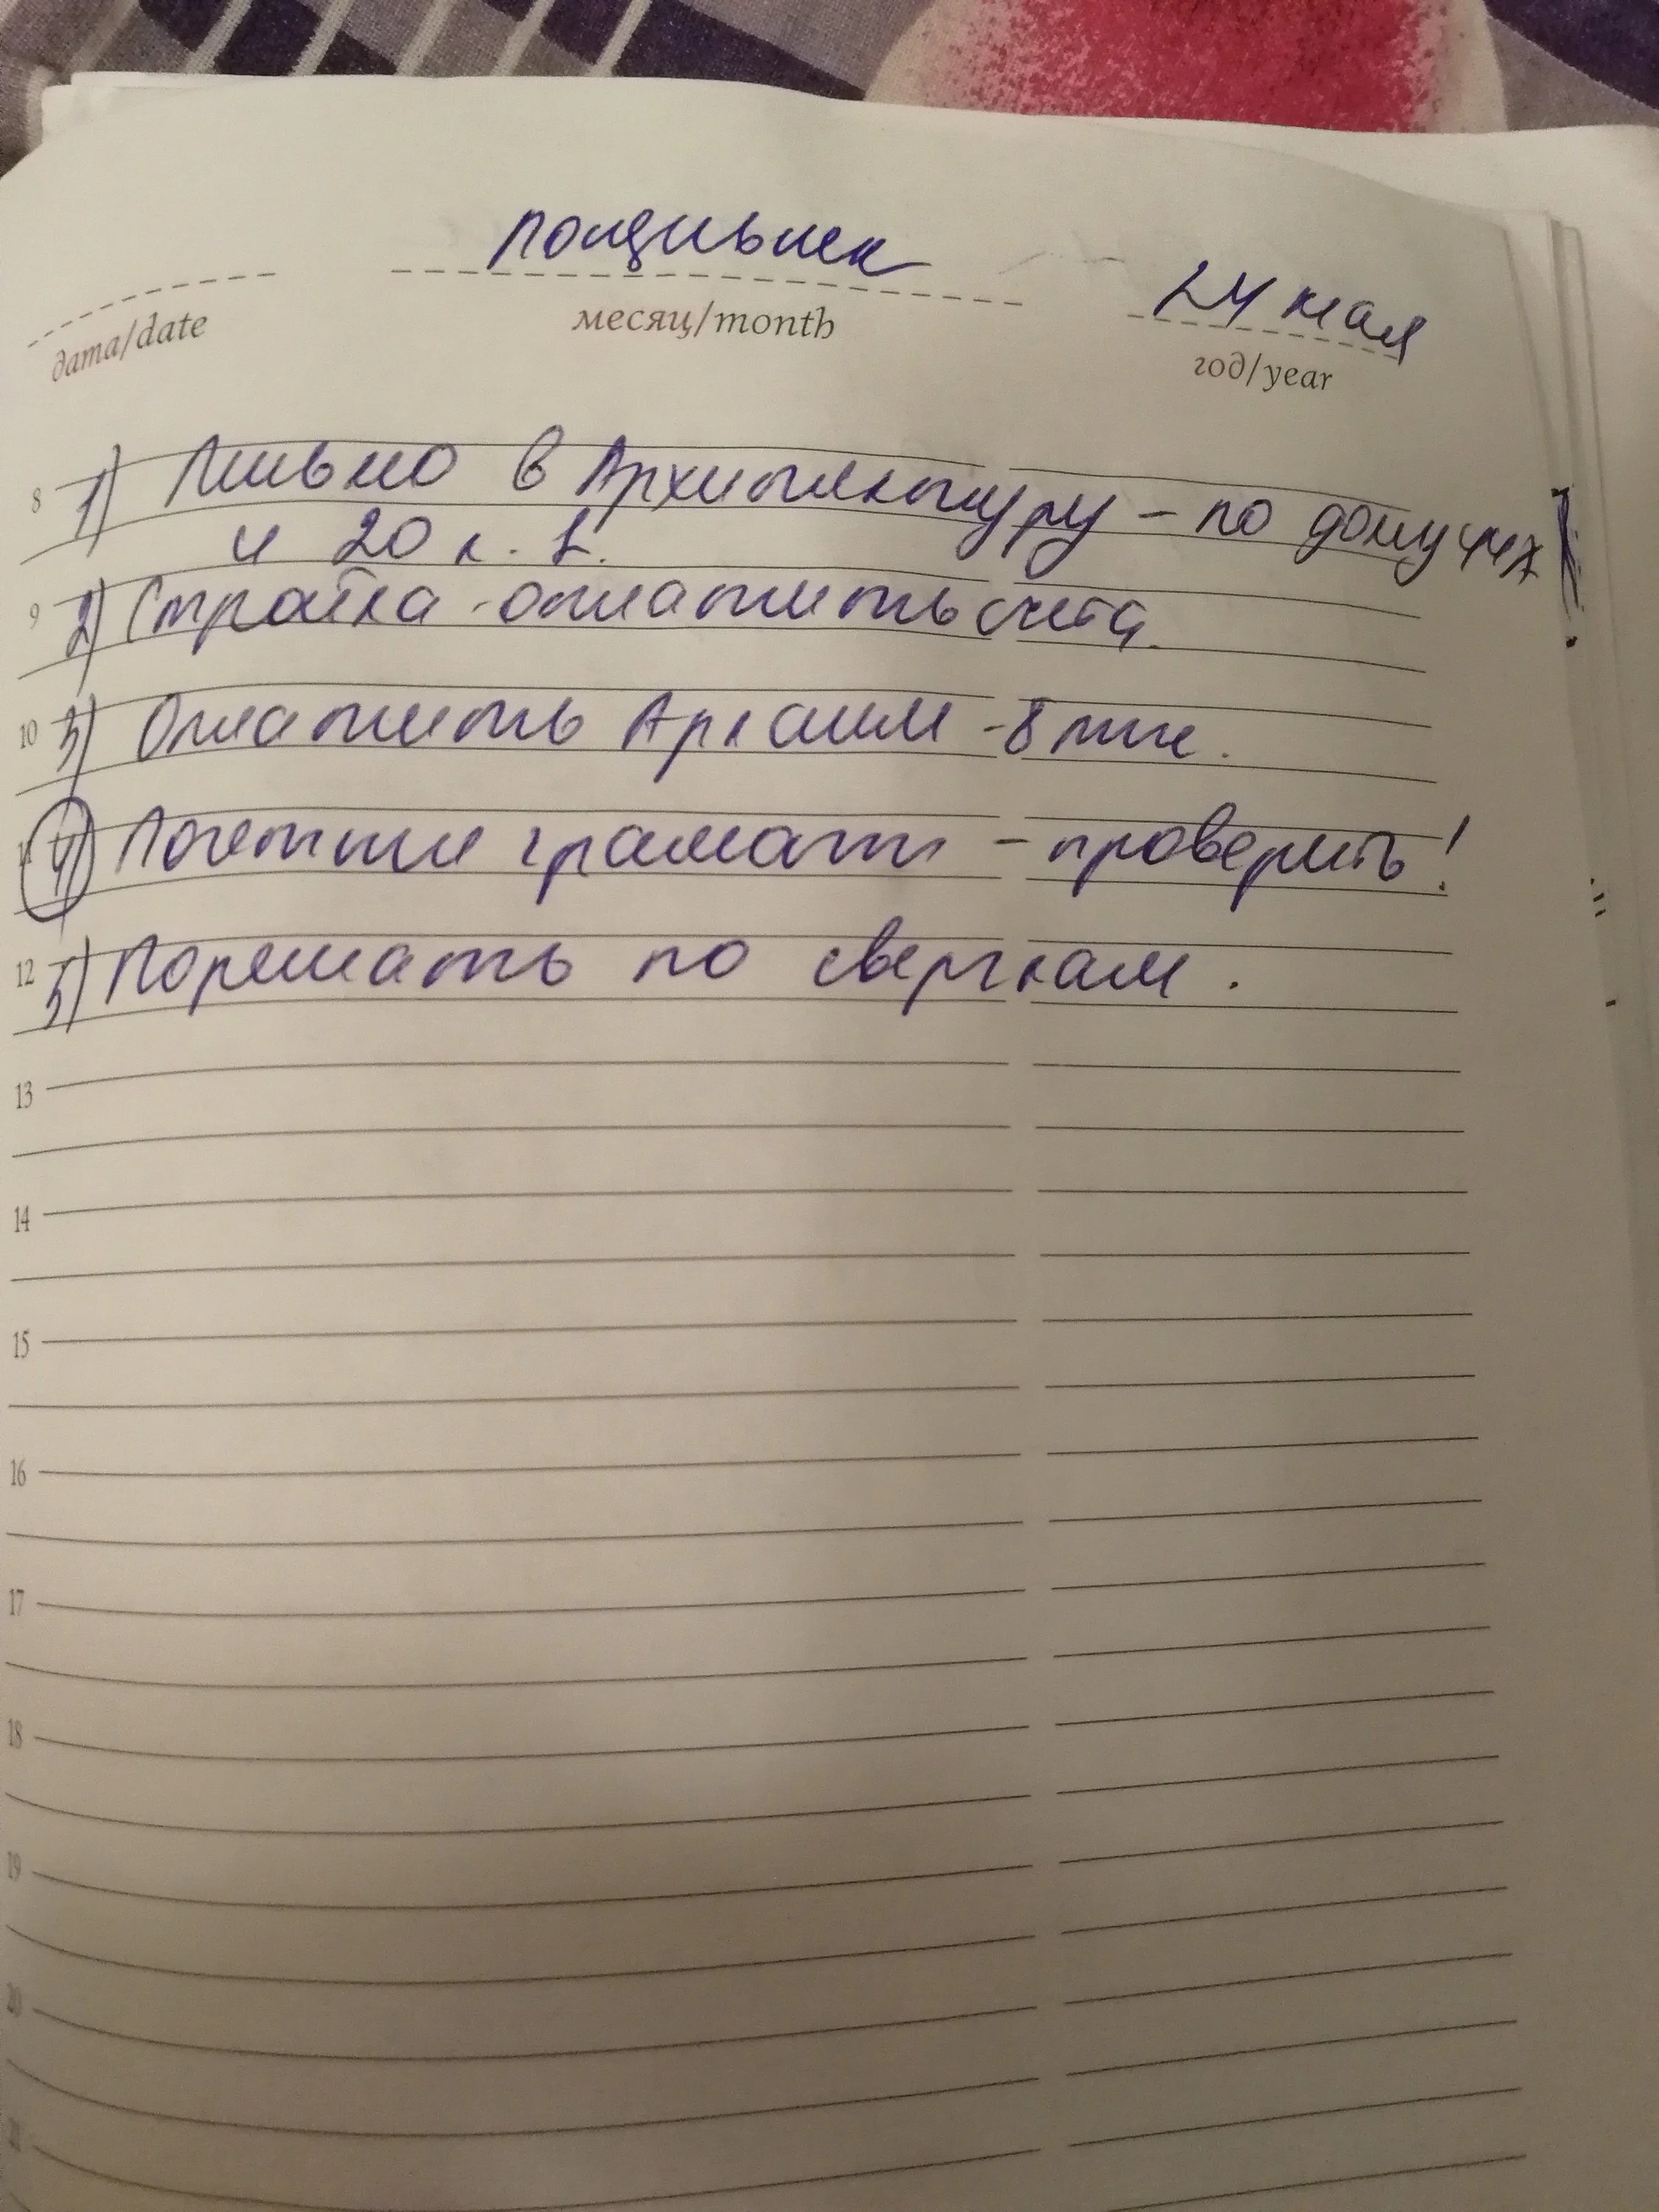 понедельник
24 мая
дата/date
месяц/month
год/year
8 1) Письмо в Архитектуру - по дому
и 20 к. 2.
9 2) Стройка - оплатить счета.
10 3) Оплатить - 8 тыс.
11 4) Почетные грамоты - проверить!
12 5) Порешать по сверкам.
13
14
15
16
17
18
19
20
21